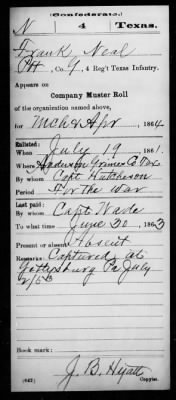 (Confederate.)
N 4 Texas.
Frank Neal
Pvt, Co. G, 4 Reg't Texas Infantry.
Appears on
Company Muster Roll
of the organization named above,
for Mch & Apr, 1864
Enlisted:
When July 19 1861
Where Anderson Grimes Co Tex
By whom Capt Hutcheson
Period For the War
Last paid:
By whom Capt. Wade
To what time June 30, 1863
Present or absent Absent
Remarks: Captured at
Gettysburg Pa July
2/63
Book mark:
J. B. Hyatt
(642) Copyist.